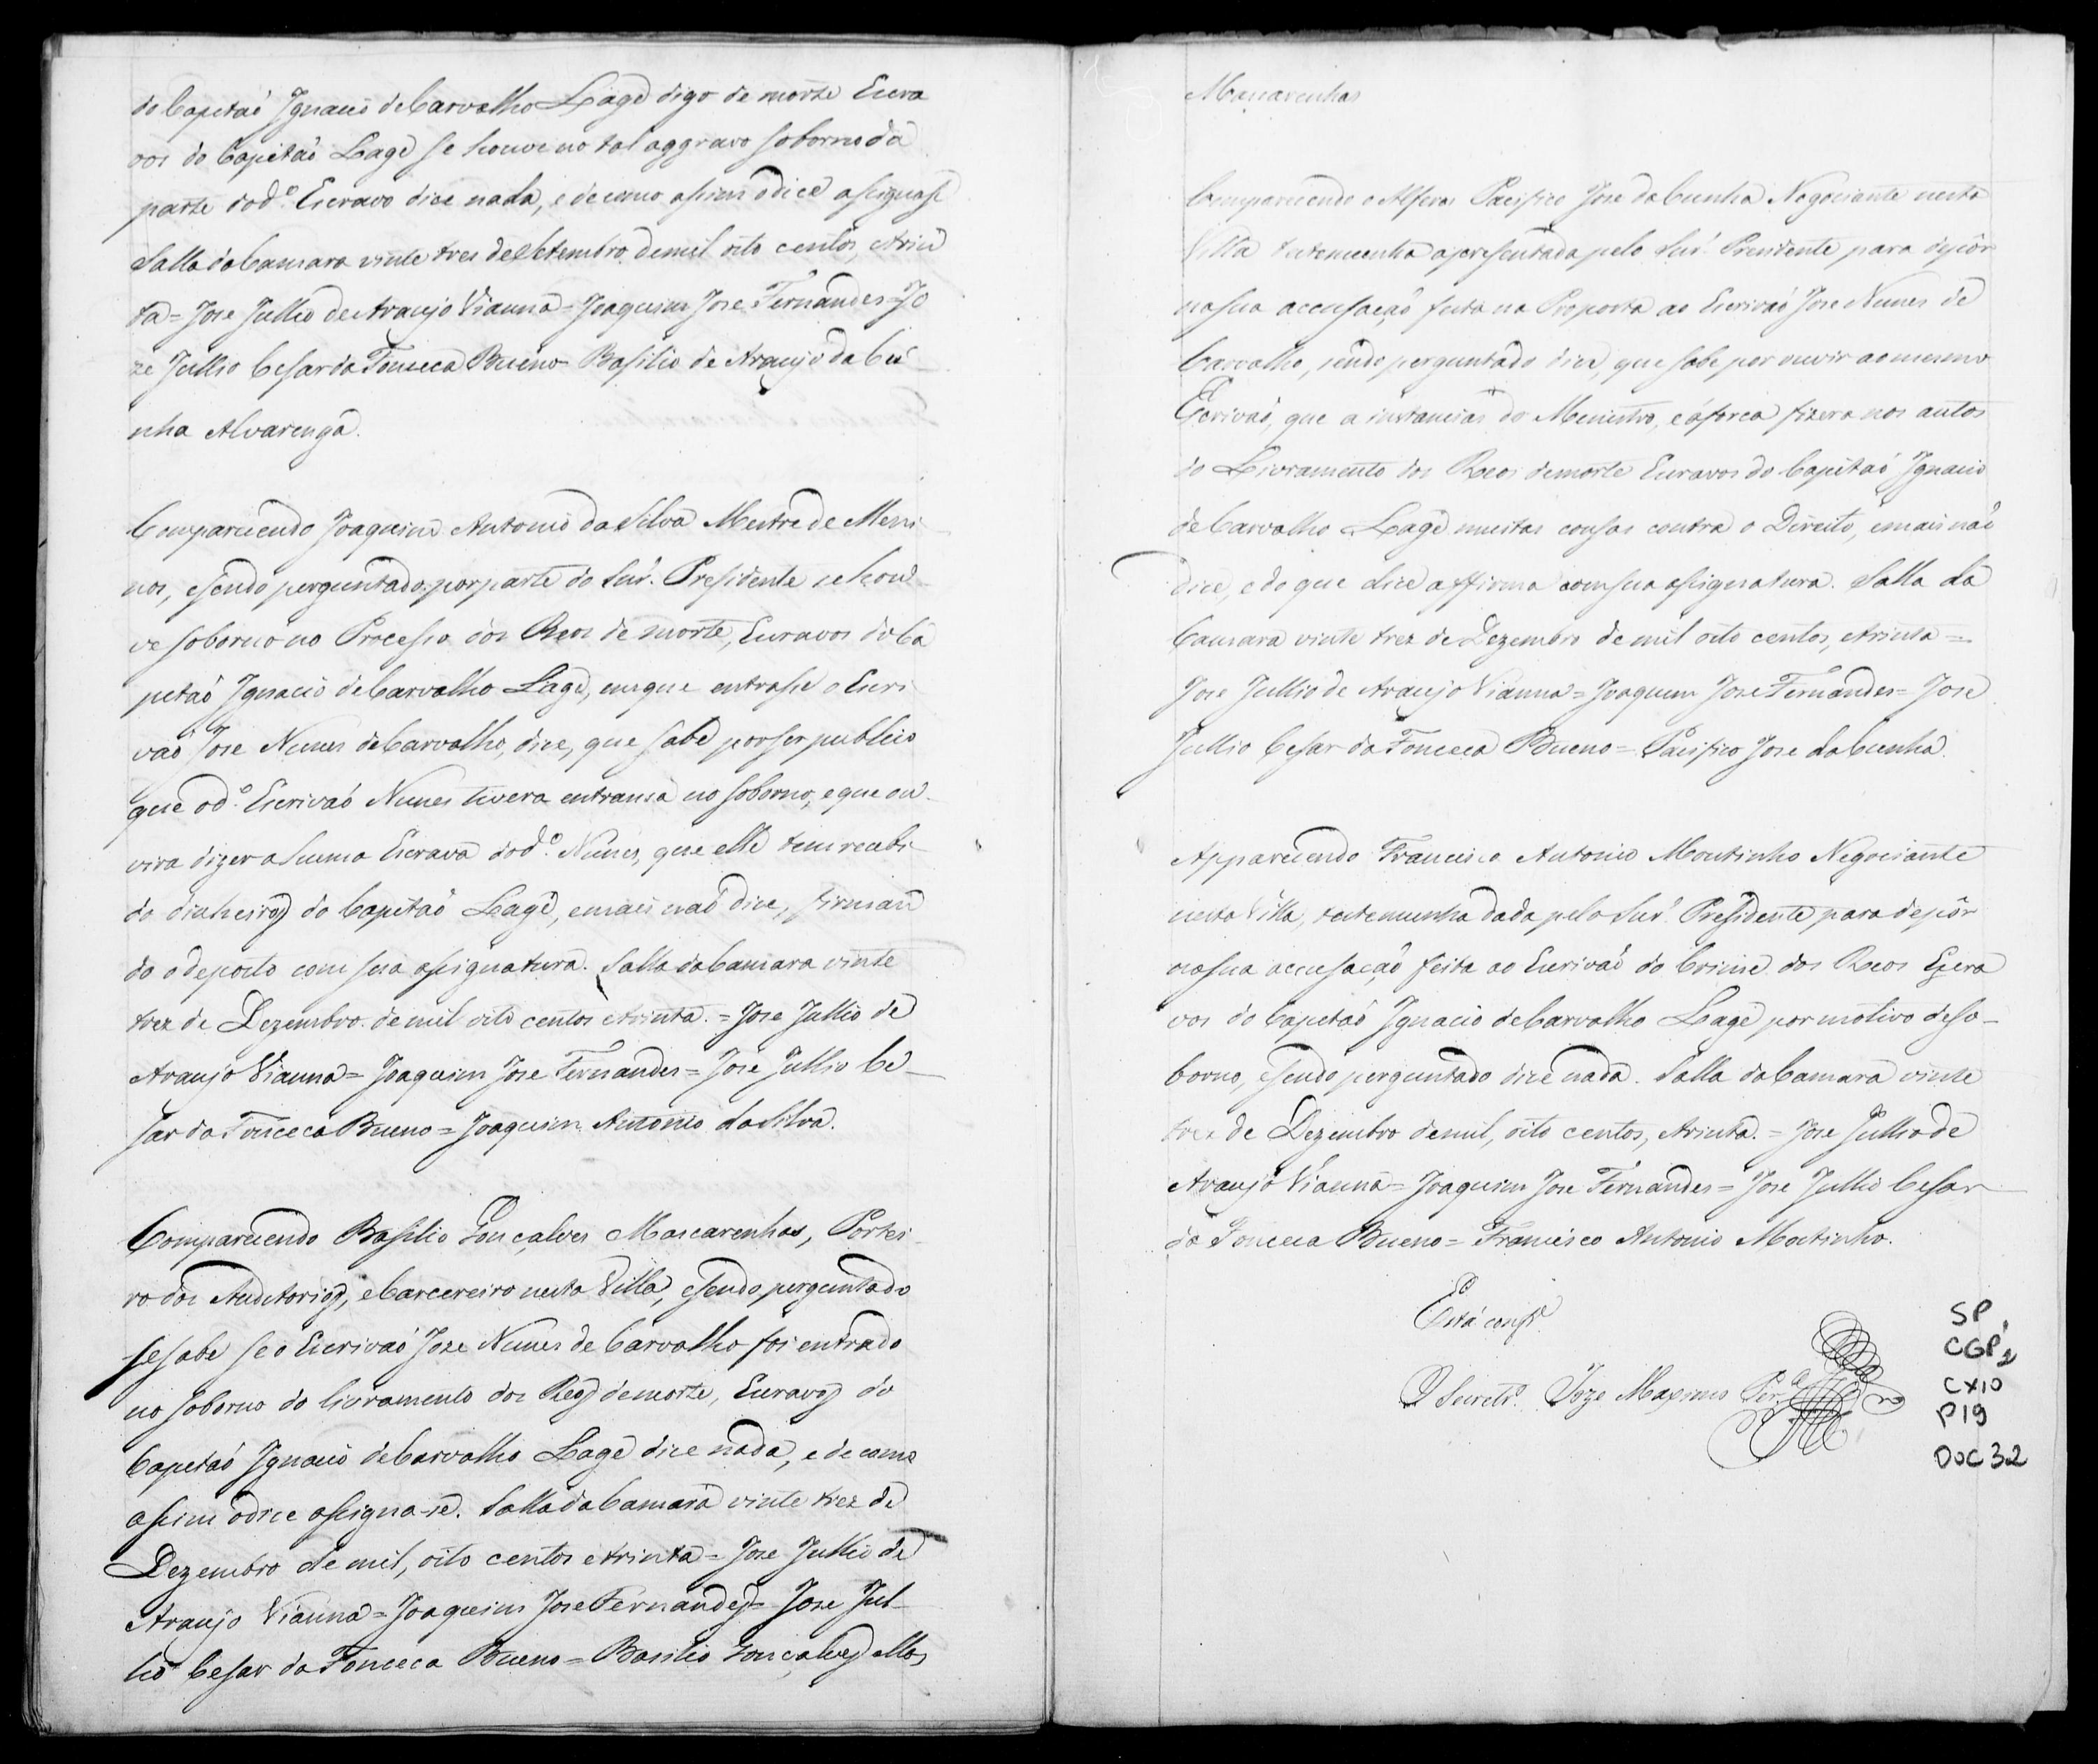 do Capitaõ Ignacio de Carvalho Lage digo de morte Escra
vos do Capitaõ Lage se houve no tal aggravo soborno da
parte dod.º Escravo dice nada, e de como assim o dice assignase
Salla da Camara vinte tres de Setembro de mil oito centos, etrin
ta = Joze Jullio de Araujo Vianna = Joaquim Joze Fernandes = Jo
ze Jullio Cesar da Fonceca Bueno = Basilio de Araujo da Cu
nha Alvarenga.
Comparecendo Joaquim Antonio da Silva Mestre de Meni
nos, esendo perguntado por parte do Snr. Presidente se hou
ve soborno no Processo dos Reos de morte, Escravos do Ca
pitaõ Ignacio de Carvalho Lage, em que entrasse o Escri
vaõ Joze Nunes de Carvalho, dice, que sabe por ser publico
que od.º Escrivaõ Nunes tivera entransa no soborno, e que ou
vira dizer a huma Escrava dod.º Nunes, que elle tem recebi
do dinheiros do Capitaõ Lage, emais naõ dice, firman
do o deposto com sua assignatura. Salla da Camara vinte
trez de Dezembro de mil oito centos etrinta. = Joze Jullio de
Araujo Vianna = Joaquim Joze Fernandes = Joze Jullio Ce
sar da Fonceca Bueno = Joaquim Antonio da Silva.
Comparecendo Basilio Gonçalves Mascarenhas, Portei
ro dos Auditorios, e Carcereiro nesta Villa, esendo perguntado
se sabe se o Escrivaõ Joze Nunes de Carvalho foi entrado
no soborno do livramento dos Reos de morte, Escravos do
Capitaõ Ignacio de Carvalho Lage dice nada, e de como
assim o dice assigna-se. Salla da Camara vinte trez de
Dezembro de mil, oito centos etrinta = Joze Jullio de
Araujo Vianna = Joaquim Joze Fernandes = Joze Jul
lio Cesar da Fonceca Bueno = Basilio Gonçalves Mas
Mascarenhas
Comparecendo o Alferes Pacifico Joze da Cunha Negociante nesta
Villa testemunha apresentada pelo Snr. Presidente para depôr
nasua accusaçaõ feita na Proposta ao Escrivaõ Joze Nunes de
Carvalho, sendo perguntado dice, que sabe por ouvir ao mesmo
Escrivaõ, que a instancias do Menistro, e á força fizera nos autos
do Livramento dos Reos de morte Escravos do Capitaõ Ignacio
de Carvalho Lage muitas cousas contra o Direito, emais naõ
dice, e do que dice affirma com sua assignatura. Salla da
Camara vinte trez de Dezembro de mil oito centos, etrinta =
Joze Jullio de Araujo Vianna = Joaquim Joze Fernandes = Joze
Jullio Cesar da Fonceca Bueno = Pacifico Joze da Cunha.
Apparecendo Francisco Antonio Moutinho Negociante
nesta Villa, testemunha dada pelo Snr. Presidente para depôr
nasua accusaçaõ feita ao Escrivaõ do Crime dos Reos Escra
vos do Capitaõ Ignacio de Carvalho Lage, por motivo de so-
borno, esendo perguntado dice nada. Salla da Camara vinte
trez de Dezembro de mil, oito centos, etrinta. = Joze Jullio de
Araujo Vianna = Joaquim Joze Fernandes = Joze Jullio Cesar
da Fonceca Bueno = Francisco Antonio Moutinho.
Está conf.e
O Secretr.º Joze Maximo Per.ª
SP
CGP1
CX10
P19
DOC 32